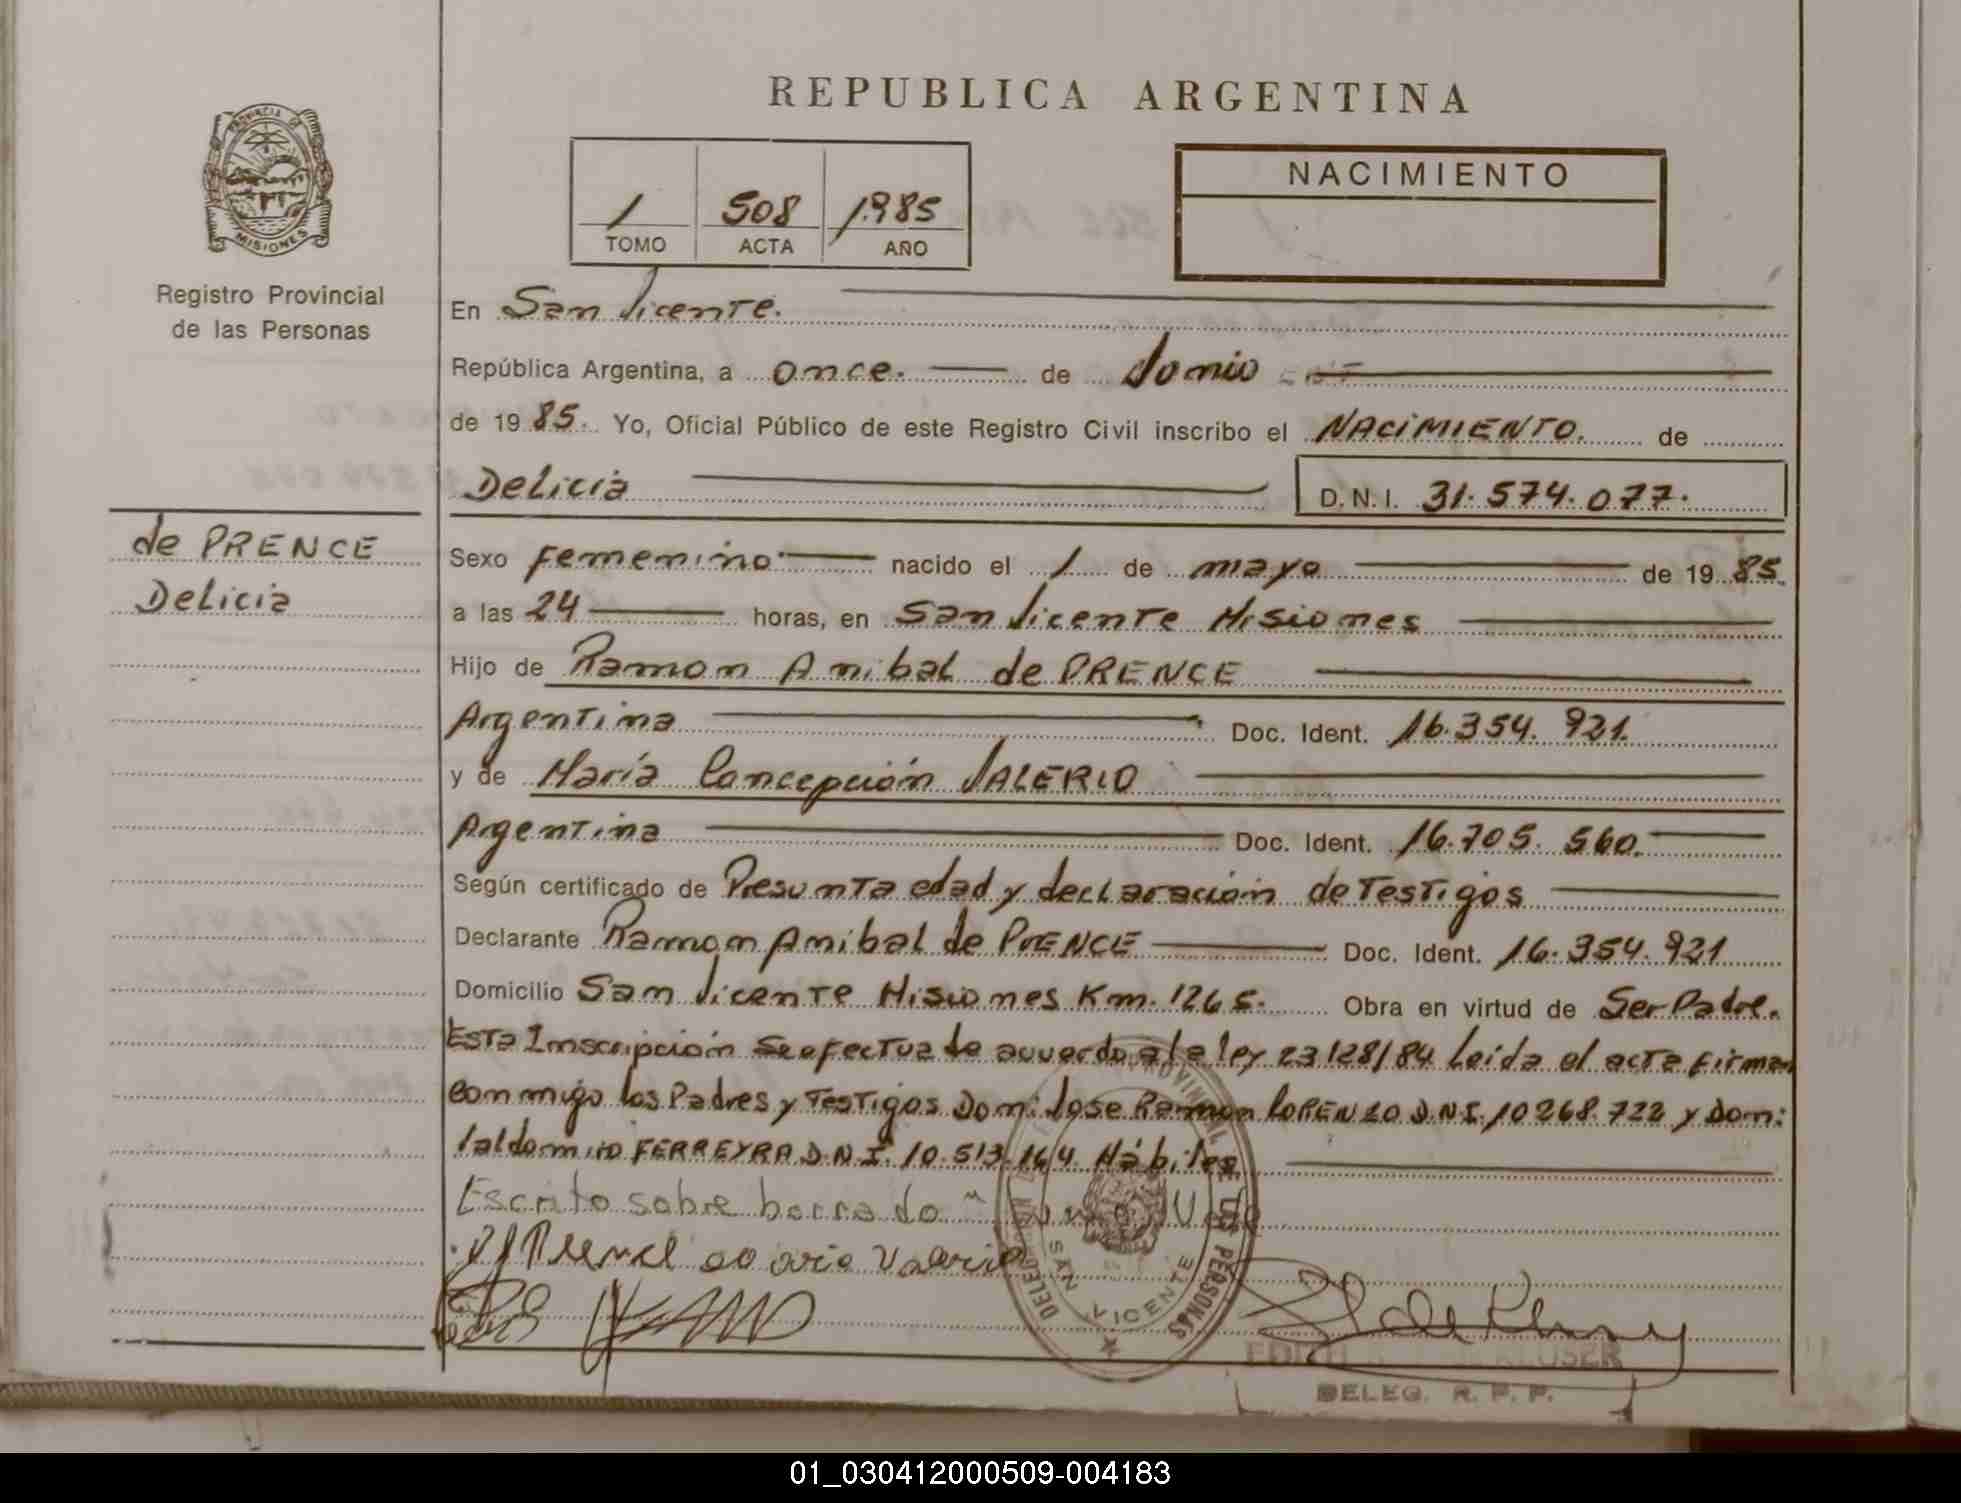 REPUBLICA ARGENTINA
PROVINCIA DE
MISIONES
Registro Provincial
de las Personas
1 508 1985
TOMO ACTA AÑO
NACIMIENTO
En San Vicente.
República Argentina, a once. de Junio
de 1985. Yo, Oficial Público de este Registro Civil inscribo el NACIMIENTO. de
Delicia D.N.I. 31.574.077.
de PRENCE
Delicia
Sexo Femenino nacido el 1 de mayo de 1985.
a las 24 horas, en San Vicente Misiones
Hijo de Ramon Anibal de PRENCE
Argentina Doc. Ident. 16.354.921.
y de María Concepción VALERIO
Argentina Doc. Ident. 16.705.560.
Según certificado de Presunta edad y declaración de Testigos
Declarante Ramon Anibal de PRENCE Doc. Ident. 16.354.921
Domicilio San Vicente Misiones Km. 1265. Obra en virtud de Ser Padre.
Esta Inscripción se efectua de acuerdo a la ley 23128/84 Leida el acta firman
conmigo los Padres y Testigos Dom: Jose Ramon LORENZO D.N.I. 10268.722 y Dom:
Valdomiro FERREYRA D.N.I. 10.513.164. Hábiles
Escrito sobre borrado
Valerio
SAN VICENTE
DELEG. R. P. P.
01_030412000509-004183